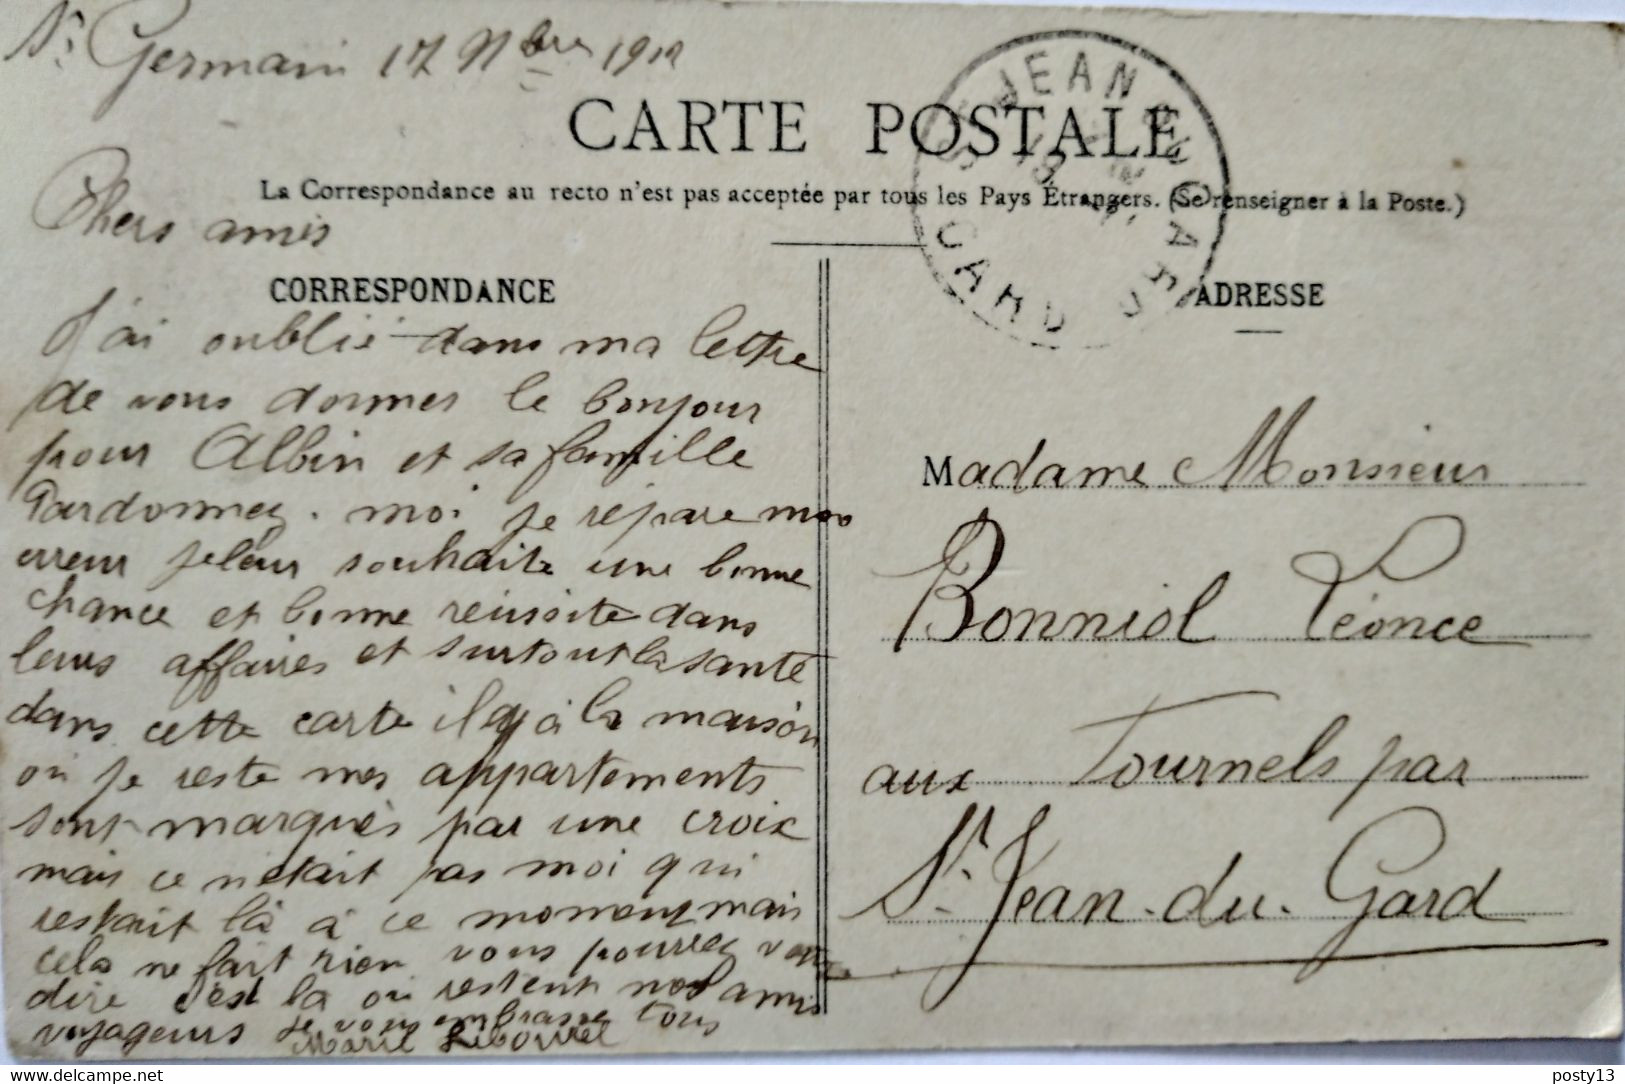 St Germain 17 9bre 1912
CARTE POSTALE
La Correspondance au recto n'est pas acceptée par tous les Pays Étrangers. (Se renseigner à la Poste.)
ST JEAN DU GARD
GARD
Chers amis
CORRESPONDANCE
J'ai oublié dans ma lettre
de vous donner le bonjour
pour Albin et sa famille
Pardonnez-moi je répare mon
erreur je leur souhaite une bonne
chance et bonne réussite dans
leurs affaires et surtout la santé
dans cette carte il y à la maison
ou je reste mes appartements
sont marqués par une croix
mais ce n'était pas moi qui
restait là à ce moment mais
cela ne fait rien vous pourrez vous
dire c'est là ou restent nos amis
voyageurs je vous embrasse tous
Marie
ADRESSE
Madame Monsieur
Bonniol Léonce
aux Tournels par
St Jean-du-Gard
posty13